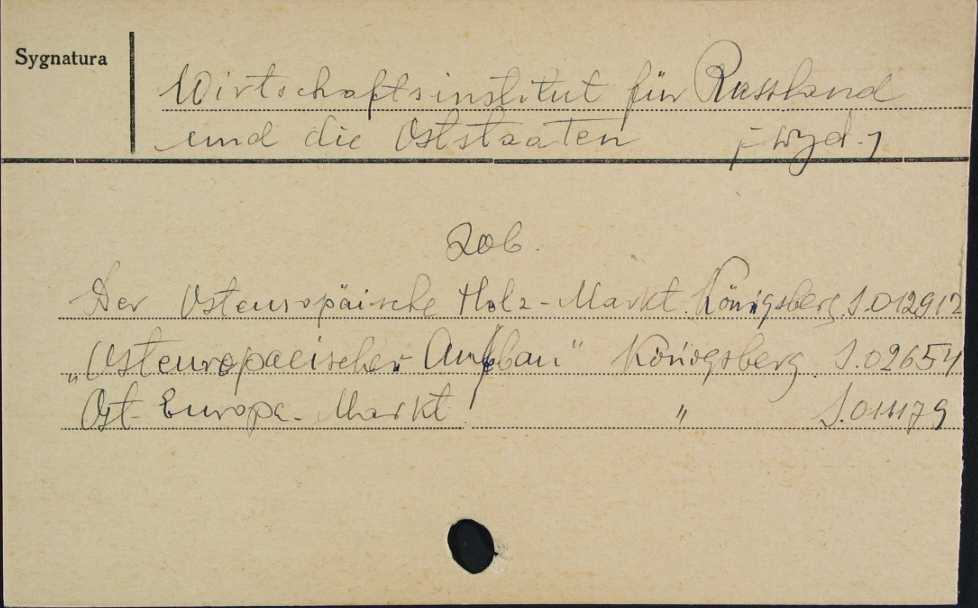 Sygnatura
Wirtschaftsinstitut für Russland
und die Oststaaten [-wyd.]
Zob.
Der Osteuropäische Holz-Markt. Königsberg. S.012912
"Osteuropaeischer Aufbau" Königsberg. S.02654
Ost-Europa-Markt " S.011179